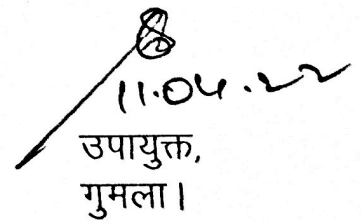 11.04.22
उपायुक्त,
गुमला।